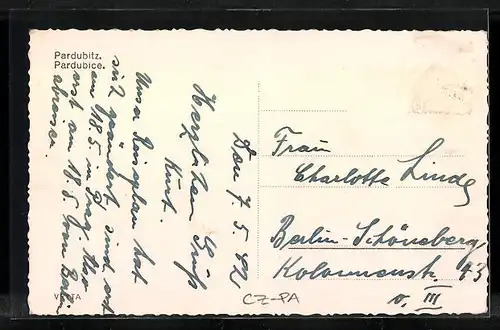 Pardubitz.
Pardubice.
Den 7. 5. 42
Herzlichen Gruß
Kurt.
Unser Reiseplan hat
sich geändert, sind erst
am 18.5. in Prag. Also
erst am 18.5. von Berlin
abreisen
Frau
Charlotte Linde
Berlin-Schöneberg
Kolonnenstr. 43
v. III
CZ-PA